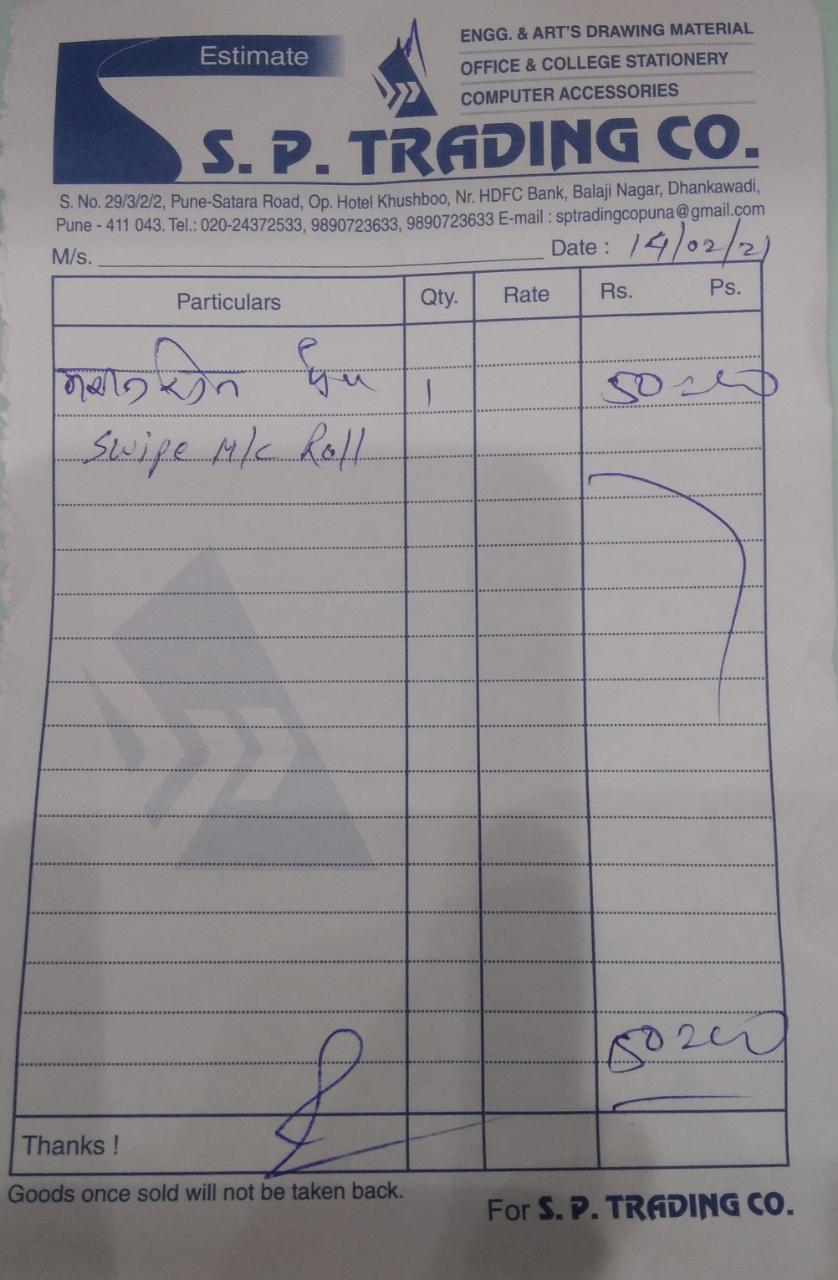 Estimate
ENGG. & ART'S DRAWING MATERIAL
OFFICE & COLLEGE STATIONERY
COMPUTER ACCESSORIES
S. P. TRADING CO.
S. No. 29/3/2/2, Pune-Satara Road, Op. Hotel Khushboo, Nr. HDFC Bank, Balaji Nagar, Dhankawadi,
Pune - 411 043. Tel.: 020-24372533, 9890723633, 9890723633 E-mail : sptradingcopuna@gmail.com
M/s. Date : 14/02/21
Particulars Qty. Rate Rs. Ps.
1 50
Swipe M/c Roll
50
Thanks !
Goods once sold will not be taken back.
For S. P. TRADING CO.